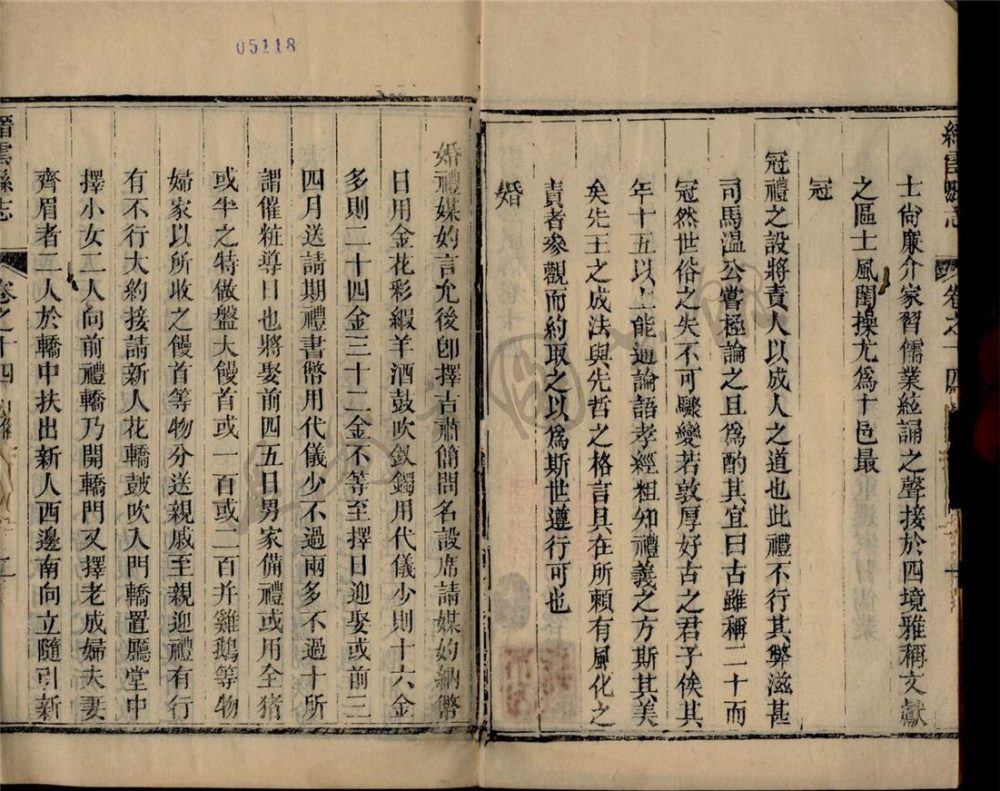 士尚廉介家習儒業絃誦之聲接於四境雅稱文獻
之區士風閨操尤爲十邑最
冠
冠禮之設將責人以成人之道也此禮不行其弊滋甚
司馬温公嘗極論之且爲酌其宜曰古雖稱二十而
冠然世俗之失不可驟變若敦厚好古之君子俟其
年十五以上能通論語孝經粗知禮義之方斯其美
矣先王之成法與先哲之格言具在所賴有風化之
責者參觀而約取之以爲斯世遵行可也
婚
婚禮媒妁言允後卽擇古肅簡問名設席請媒妁納幣
日用金花彩緞羊酒鼓吹釵鐲用代儀少則十六金
多則二十四金三十二金不等至擇日迎娶或前三
四月送請期禮書幣用代儀少不過兩多不過十所
謂催粧導日也將娶前四五日男家備禮或用全猪
或半之特做盤大饅首或一百或二百并雞鵝等物
婦家以所收之饅首等物分送親戚至親迎禮有行
有不行大約接請新人花轎鼓吹入門轎置廳堂中
擇小女二人向前禮轎乃開轎門又擇老成婦夫妻
齊眉者二人於轎中扶出新人西邊南向立隨引新
縉雲縣志
卷之十四
05118